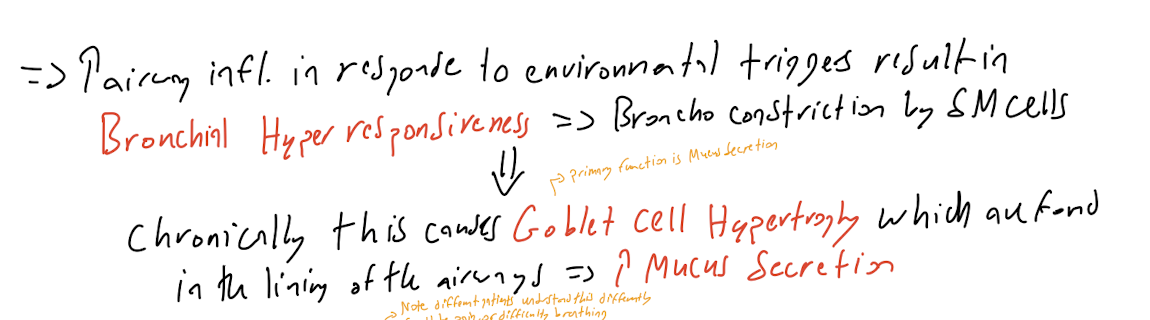 => ↑ airway infl. in response to environmental trigges result in
Bronchial Hyper responsiveness => Broncho constriction by SM cells
⇓
↱ Primary function is Mucus Secretion
Chronically this causes Goblet cell Hypertrophy which are fond
in the lining of the airways => ↑ Mucus Secretion
→ Note different patients understand this differently
or difficulty breathing